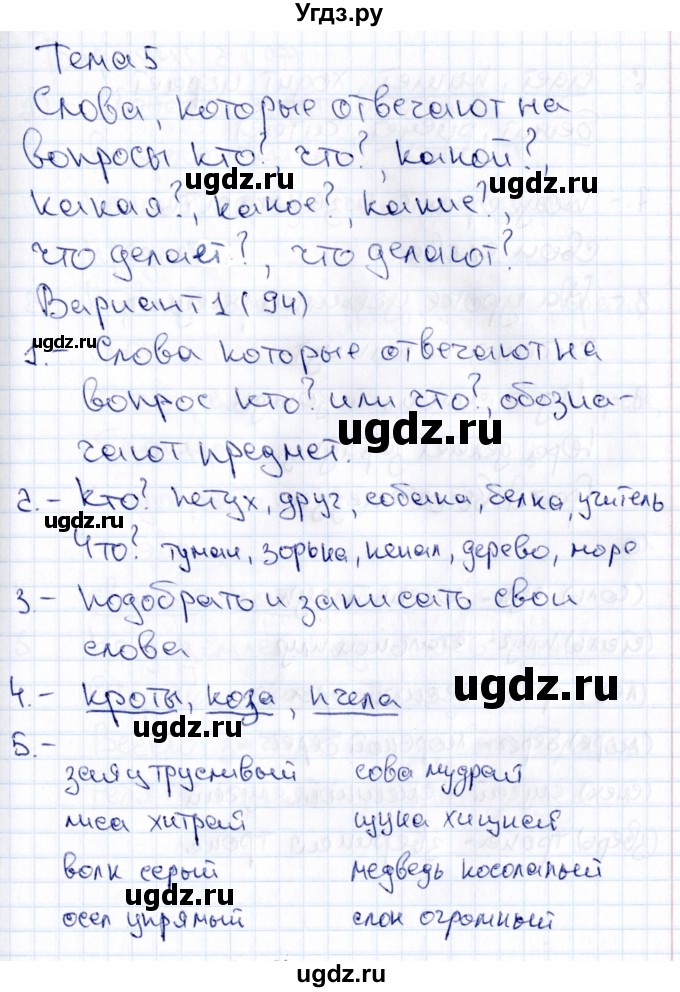 Угдз.ру
Тема 5
Слова, которые отвечают на
вопросы кто?, что?, какой?,
ugdz.ru ugdz.ru
какая?, какое?, какие?,
что делает?, что делают?
Вариант 1 (94)
ugdz.ru
1.- Слова которые отвечают на
вопрос кто? или что?, обозна-
ugdz.ru
чают предмет.
2.- Кто? петух, друг, собака, белка, учитель
ugdz.ru
Что? туман, зорька, пенал, дерево, море
3.- подобрать и записать свои
слова
ugdz.ru
4.- кроты, коза, пчела
ugdz.ru
5.-
заяц трусливый сова мудрая
лиса хитрая щука хищная
волк серый медведь косолапый
ugdz.ru
осел упрямый слон огромный
ugdz.ru